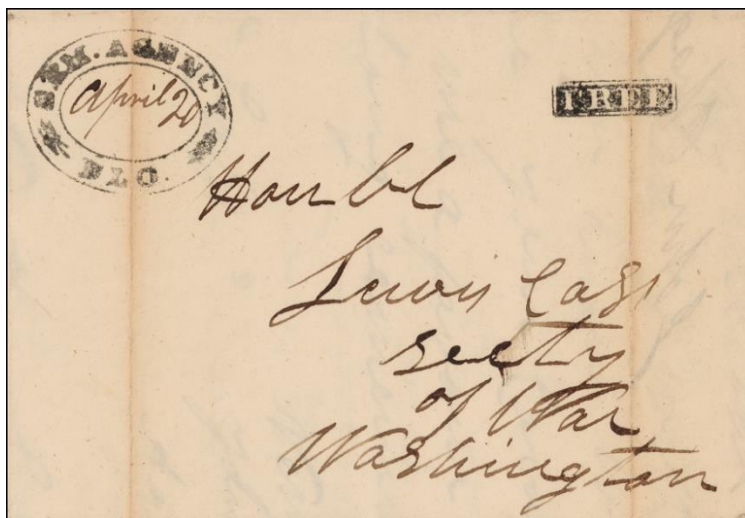 SEM. AGENCY
April 20
FLO.
FREE
Honbl
Lewis Cass
Secty
of War
Washington